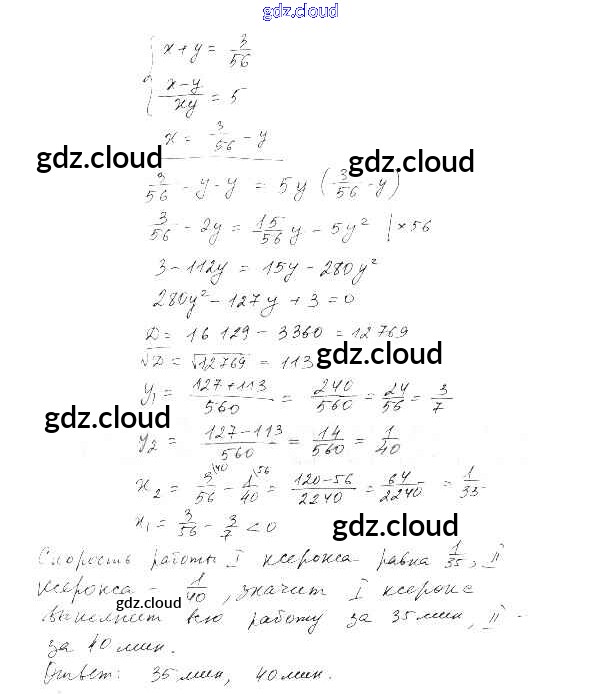 gdz.cloud
x + y = 3/56
(x-y)/xy = 5
x = 3/56 - y
gdz.cloud
gdz.cloud
3/56 - y - y = 5y (3/56 - y)
3/56 - 2y = 15/56 y - 5y² | ×56
3 - 112y = 15y - 280y²
280y² - 127y + 3 = 0
D = 16 129 - 3360 = 12 769
√D = √12769 = 113
gdz.cloud
y₁ = (127+113)/560 = 240/560 = 24/56 = 3/7
gdz.cloud
y₂ = (127-113)/560 = 14/560 = 1/40
x₂ = 3/56 \40 - 1/40 \56 = (120-56)/2240 = 64/2240 = 1/35
x₁ = 3/56 - 3/7 < 0
gdz.cloud
Скорость работы I ксерокса равна 1/35, II
ксерокса - 1/40, значит I ксерокс
gdz.cloud
выполнит всю работу за 35 мин, II -
за 40 мин.
Ответ: 35 мин, 40 мин.